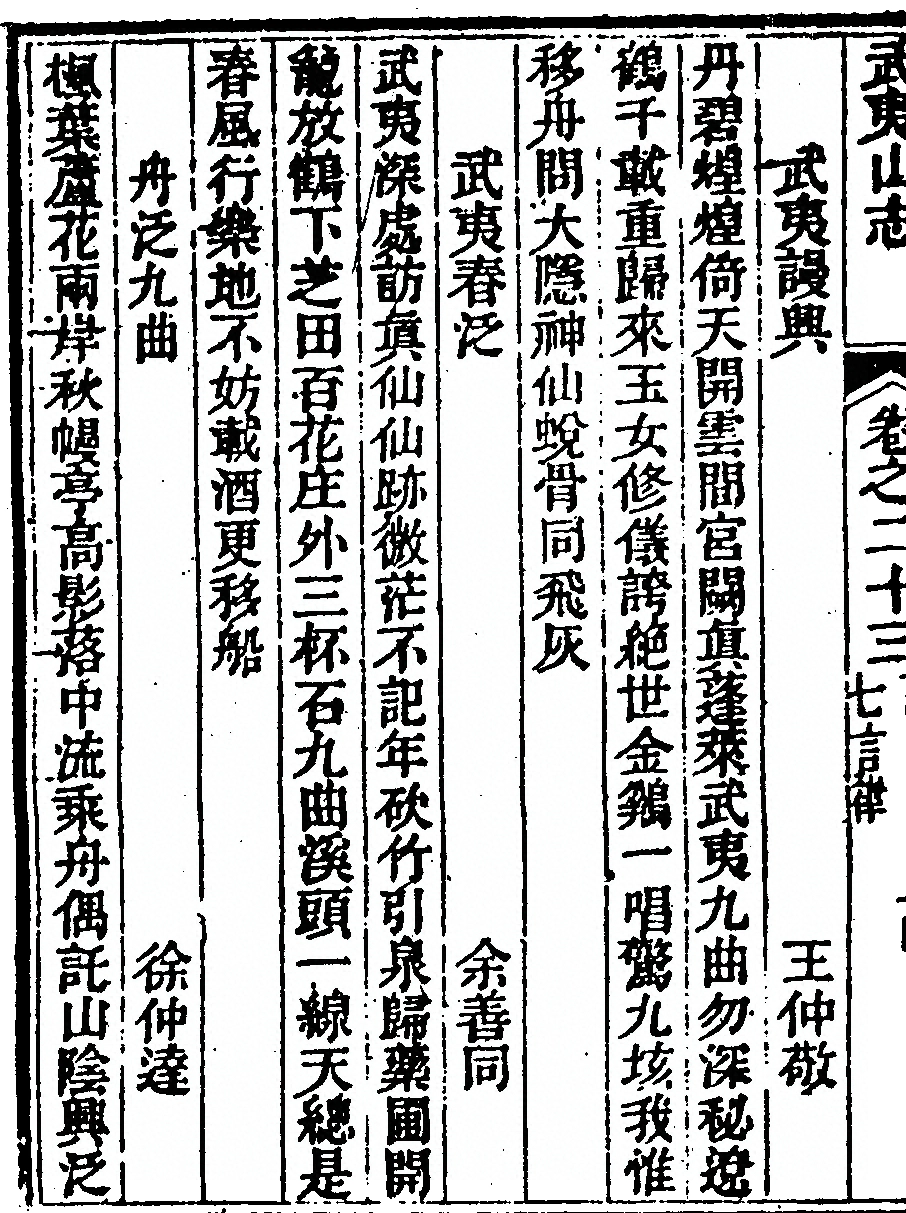 武夷山志
卷之二十三
七言律
武夷謾興
王仲敬
丹碧煌煌倚天開雲間宮闕眞蓬萊武夷九曲勿深秘遼
鶴千載重歸來玉女修儀誇絕世金鷄一唱驚九垓我惟
移舟問大隱神仙蛻骨同飛灰
武夷春泛
余善同
武夷深處訪眞仙仙跡微茫不記年砍竹引泉歸藥圃開
籠放鶴下芝田百花庄外三杯石九曲溪頭一線天總是
春風行樂地不妨載酒更移船
舟泛九曲
徐仲達
楓葉蘆花兩岸秋幔亭高影落中流乘舟偶託山陰興泛